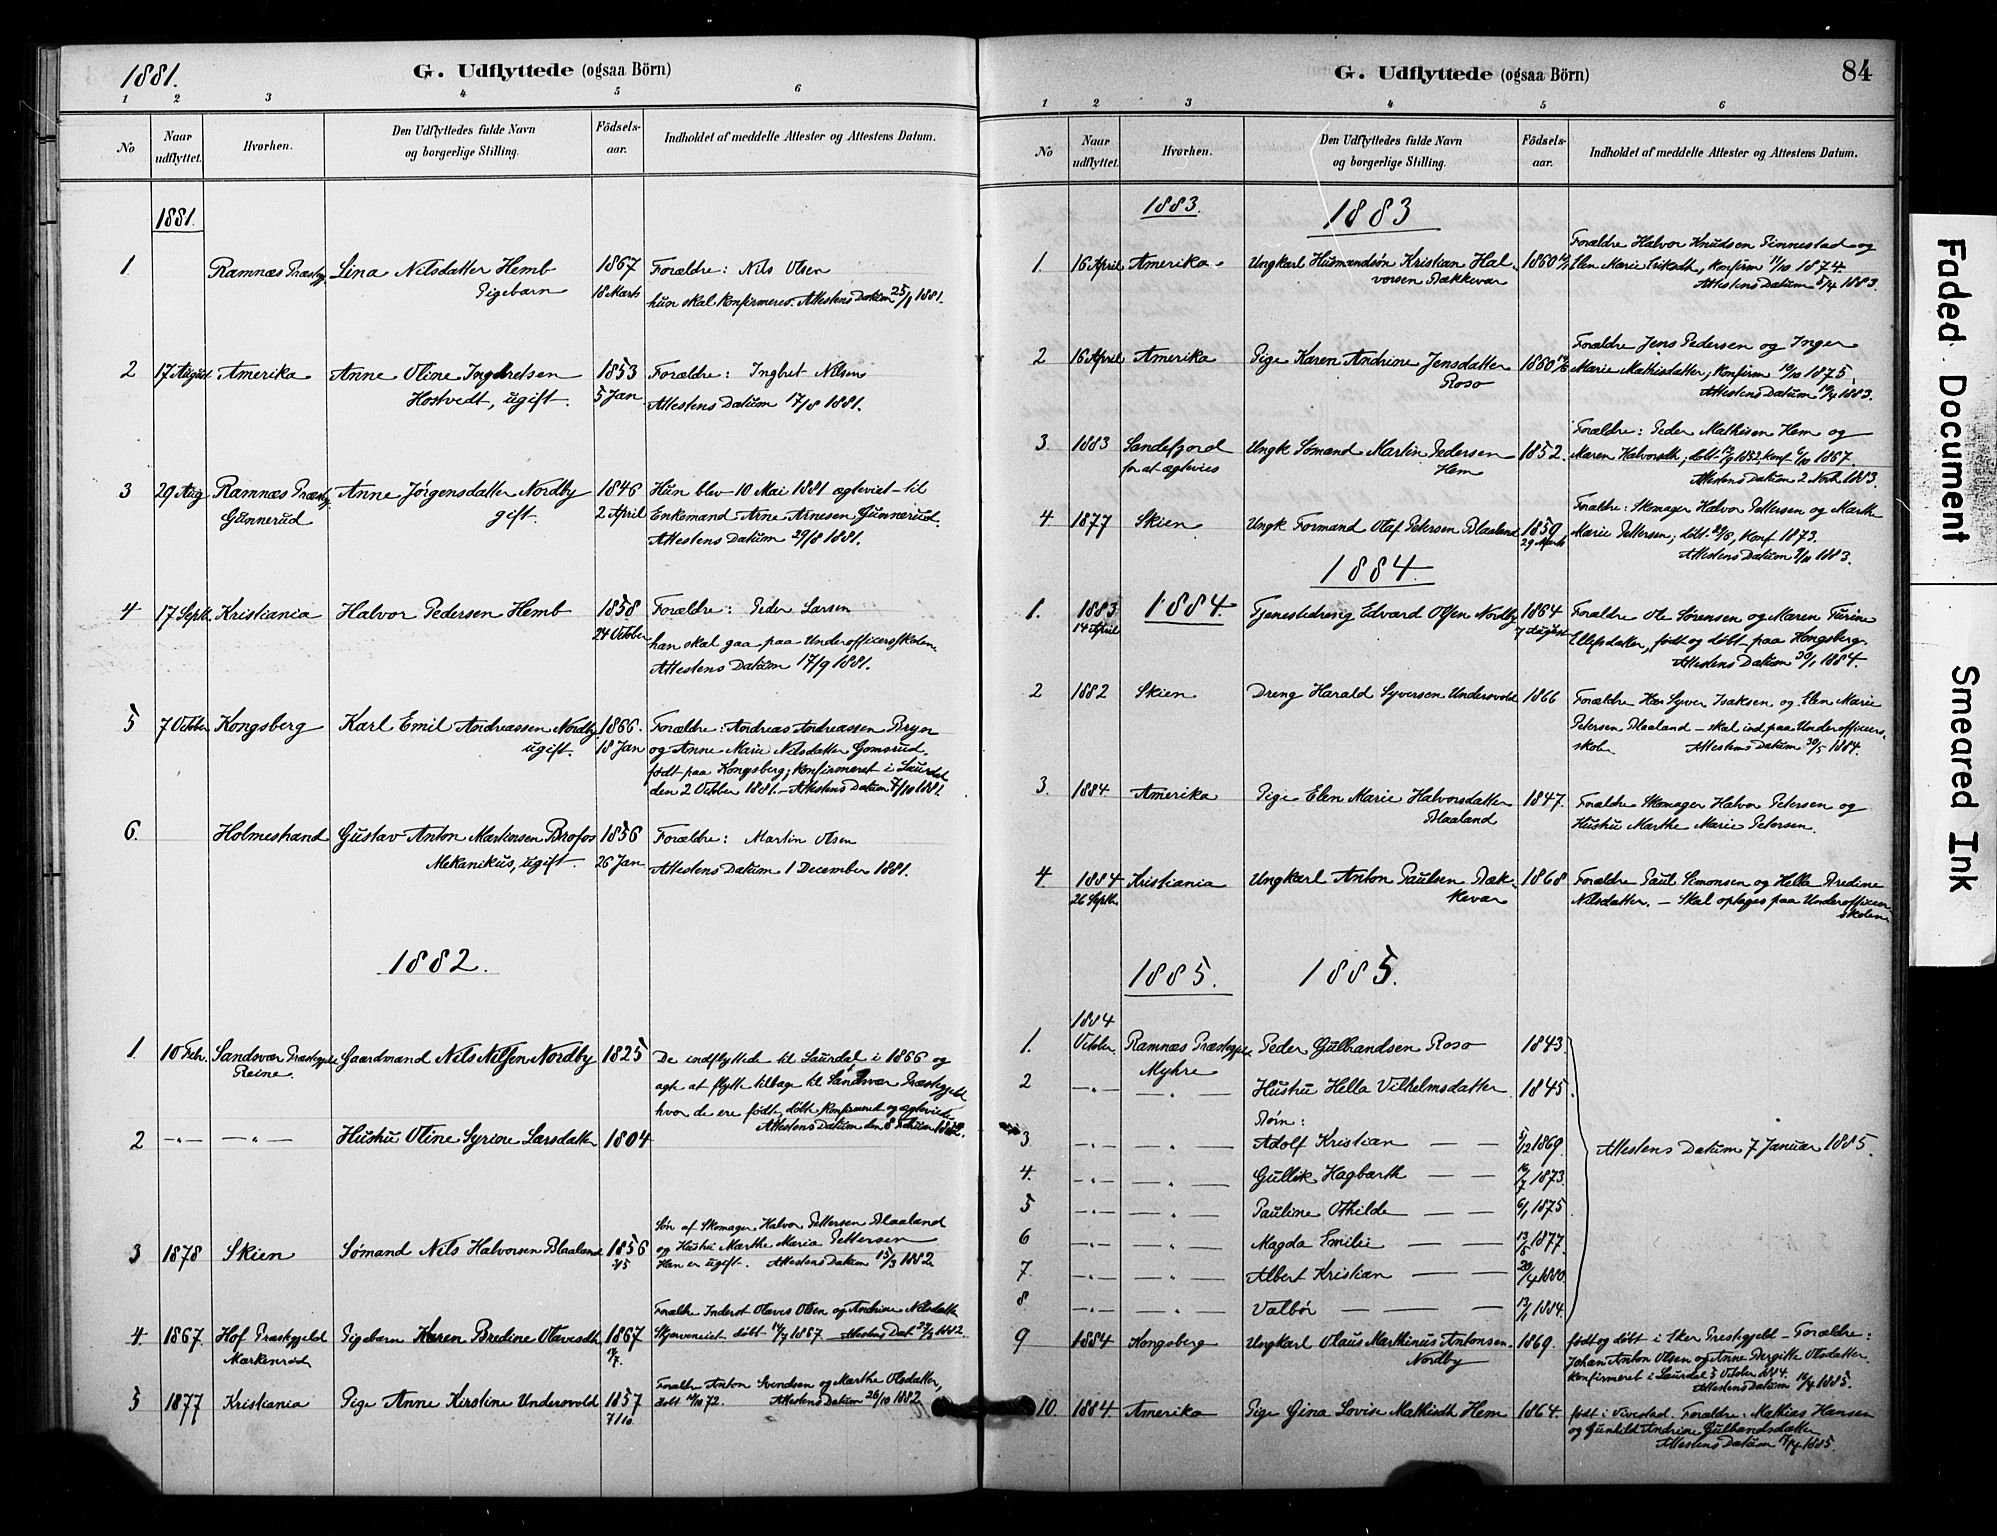 1881.
G. Udflyttede (ogsaa Börn)
1 2 3 4 5 6
No
Naar udflyttet.
Hvorhen.
Den Udflyttedes fulde Navn og borgerlige Stilling.
Fødsels-aar.
Indholdet af meddelte Attester og Attestens Datum.
1881.
1 Ramnæs Præstegj Lina Nilsdatter Hemb 1867 Forældre: Nils Olsen
Pigebarn 18 Marts hun skal konfirmeres. Attestens Datum 25/1 1881.
2 17 August Amerika Anne Oline Ingebretsen 1853 Forældre: Ingbret Nilsen
Hostvedt, ugift. 5 Jan Attestens Datum 17/8 1881.
3 29 Aug Ramnæs Præstegj Anne Jørgensdatter Nordby 1846 Hun blev 10 Mai 1881 ægteviet til
Gunnerud gift. 2 April Enkemand Arne Arnesen Gunnerud.
Attestens Datum 29/8 1881.
4 17 Septb. Kristiania Halvor Pedersen Hemb 1858 Forældre: Peder Larsen
24 October han skal gaa paa Underofficersskolen
Attestens Datum 17/9 1881.
5 7 Octbr Kongsberg Karl Emil Andreassen Nordby 1866. Forældre: Andreas Andreassen Bryn
ugift. 18 Jan og Anne Marie Nilsdatter Gomsrud.
født paa Kongsberg; konfirmeret i Laurdal
den 2 October 1881. Attestens Datum 7/10 1881.
6. Holmestrand Gustav Anton Martinsen Brofos 1856 Forældre: Martin Olsen
Mekanikus, ugift. 26 Jan Attestens Datum 1 December 1881.
1882.
1. 10 Febr. Sandsvær Præstegjeld Gaardmand Nils Nilsen Nordby 1825 De indflyttede til Laurdal i 1866 og
Reine. agt at flytte tilbage til Sandsvær Præstegjeld
hvor de ere født, døbt konfirmeret og ægteviede
Attestens Datum den 8 Februar 1882.
2 -„- -„- Hustru Oline Syrine Larsdatter 1804
Søn af Skomager Halvor Pettersen Blaaland
3 1878 Skien Sømand Nils Halvorsen Blaaland 1856 og Hustru Marthe Maria Pettersen
Han er ugift. Attestens Datum 15/3 1882
Forældre Inderst Olaves Olsen og Andrine Nilsdatter
4 1867. Hof Præstegjeld Pigebarn Karen Bredine Olavesdtr 1867 døbt 14/7 1867 Attestens Dat 1882
Markenrød
Forældre Anton Svendsen og Marthe Olsdatter,
5 1877 Kristiania Pige Anne Kirstine Undersvold 1857 Attestens Datum 26/10 1882
7/10.
G. Udflyttede (ogsaa Börn)
84
1 2 3 4 5 6
No
Naar udflyttet.
Hvorhen.
Den Udflyttedes fulde Navn og borgerlige Stilling.
Fødsels-aar.
Indholdet af meddelte Attester og Attestens Datum.
1883. 1883
Forældre Halvor Knudsen Tinnestad og
1. 16 April Amerika Ungkarl Husmandsøn Kristian Hal- 1860 Elen Marie Eriksdtr, konfirm 11/10 1874.
vorsen Bækkevar Attestens Datum 5/4 1883.
Forældre Jens Pedersen og Inger
2 16 April Amerika Pige Karen Andrine Jensdatter 1860 Marie Mathisdatter; konfirm 10/10 1875
Roso Attestens Datum 1883.
Forældre: Peder Mathisen Hem og
3 1883 Sandefjord Ungk Sømand Martin Pedersen 1852. Maren Halvorsdtr; døbt 1852, konf 6/10 1867.
for at ægtevies Hem Attestens Datum 2 1883.
Forældre: Skomager Halvor Pettersen og Marthe
4 1877 Skien Ungk Formand Olaf Petersen Blaaland 1859 Marie Pettersen; døbt konf 1873.
29 Marts Attestens Datum 1883.
1884.
1. 1883 1884. Tjenestedreng Edvard Olsen Nordby 1864 Forældre Ole Sørensen og Maren Turine
14 April 7 August Ellefsdatter, født og døbt paa Kongsberg
Attestens Datum 30/1 1884.
2 1882 Skien Dreng Harald Syversen Undersvold 1866 Forældre Syver Isaksen og Elen Marie
Petersen Blaaland – skal ind paa Underofficers-
skolen Attestens Datum 30/5 1884.
3. 1884 Amerika Pige Elen Marie Halvorsdatter 1847. Forældre Skomager Halvor Petersen og
Blaaland Hustru Marthe Marie Petersen.
4. 1884 Kristiania Ungkarl Anton Paulsen Bæk- 1868 Forældre Paul Simonsen og Hella Bredine
26 Septbr. kevar Nilsdatter. – Skal optages paa Underofficer
skolen
1885. 1885.
1884
1. Octbr. Ramnæs Præstegjeld Peder Gulbrandsen Roso 1843.
Myhre
2 -„- -„- Hustru Hella Vilhelmsdatter 1845.
Børn:
3 -„- -„- Adolf Kristian — — 5/12 1869. Attestens Datum 7 Januar 1885.
4. -„- -„- Gullik Hagbarth — — 16/7 1873.
5 -„- -„- Pauline Othilde — — 6/1 1875
6 -„- -„- Magda Emilie — — 13/5 1877.
7. -„- -„- Albert Kristian — — 20/4 1880.
8 -„- -„- Valbør — — — 13/1 1884.
9 1884 Kongsberg Ungkarl Olaus Marthinus Antonsen 1869. født og døbt i Eker Prestegjeld – Forældre:
Nordby Johan Anton Olsen og Anne Bergitte Olsdatter.
konfirmeret i Laurdal 5 October 1884.
Attestens Datum 1885.
10. 1884. Amerika Pige Gina Lovise Mathisdtr Hem 1864. født i Vivestad. Forældre: Mathias Hansen
og Gunhild Andrine Gulbrandsdatter
Attestens Datum 1885.
Faded Document
Smeared Ink